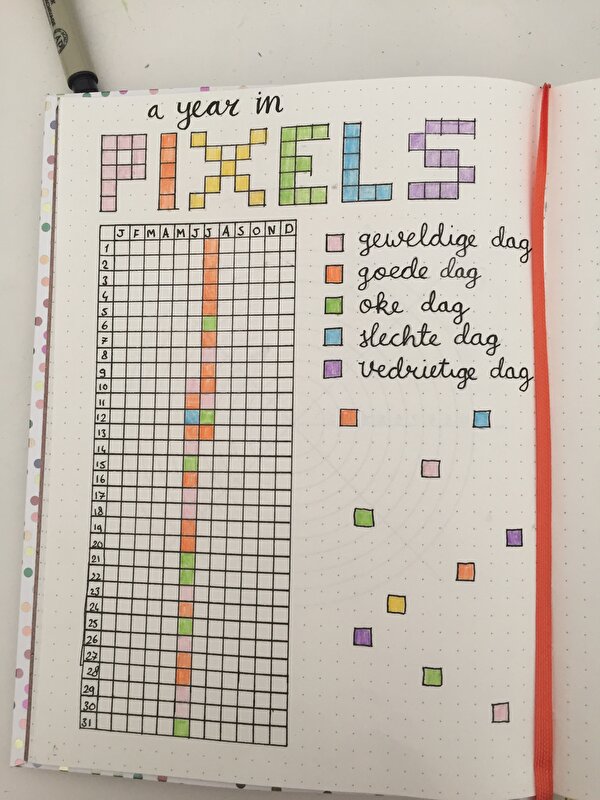 a year in
PIXELS
J F M A M J J A S O N D
1
2
3
4
5
6
7
8
9
10
11
12
13
14
15
16
17
18
19
20
21
22
23
24
25
26
27
28
29
30
31
geweldige dag
goede dag
oke dag
slechte dag
vedrietige dag